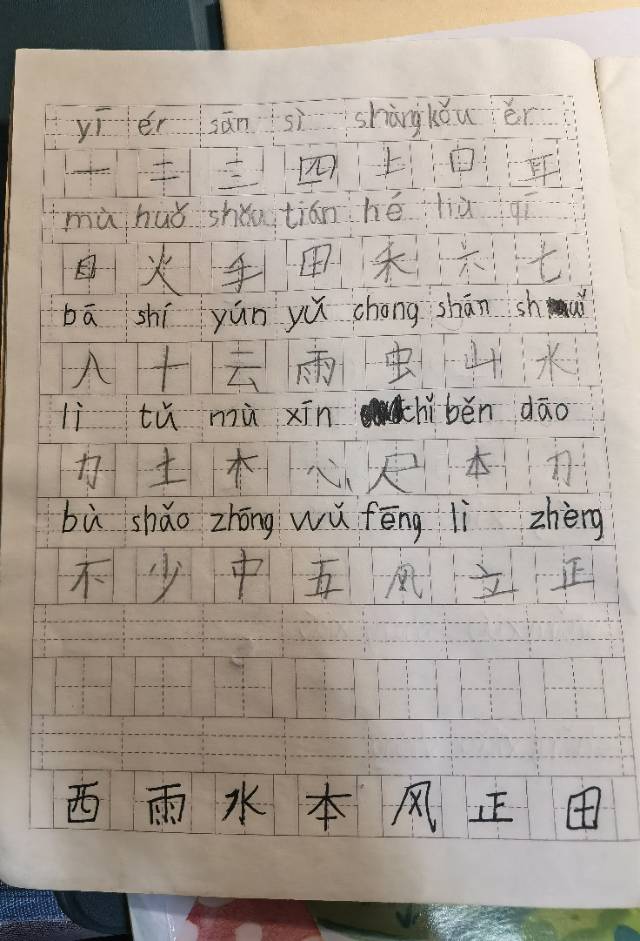 yī ér sān sì shàng kǒu ěr
一 二 三 四 上 口 耳
mù huǒ shǒu tián hé liù qī
目 火 手 田 禾 六 七
bā shí yún yǔ chong shān shuǐ
八 十 云 雨 虫 山 水
lì tǔ mù xīn chǐ běn dāo
力 土 木 心 尺 本 刀
bù shǎo zhōng wǔ fēng lì zhèng
不 少 中 五 风 立 正
西 雨 水 本 风 正 田